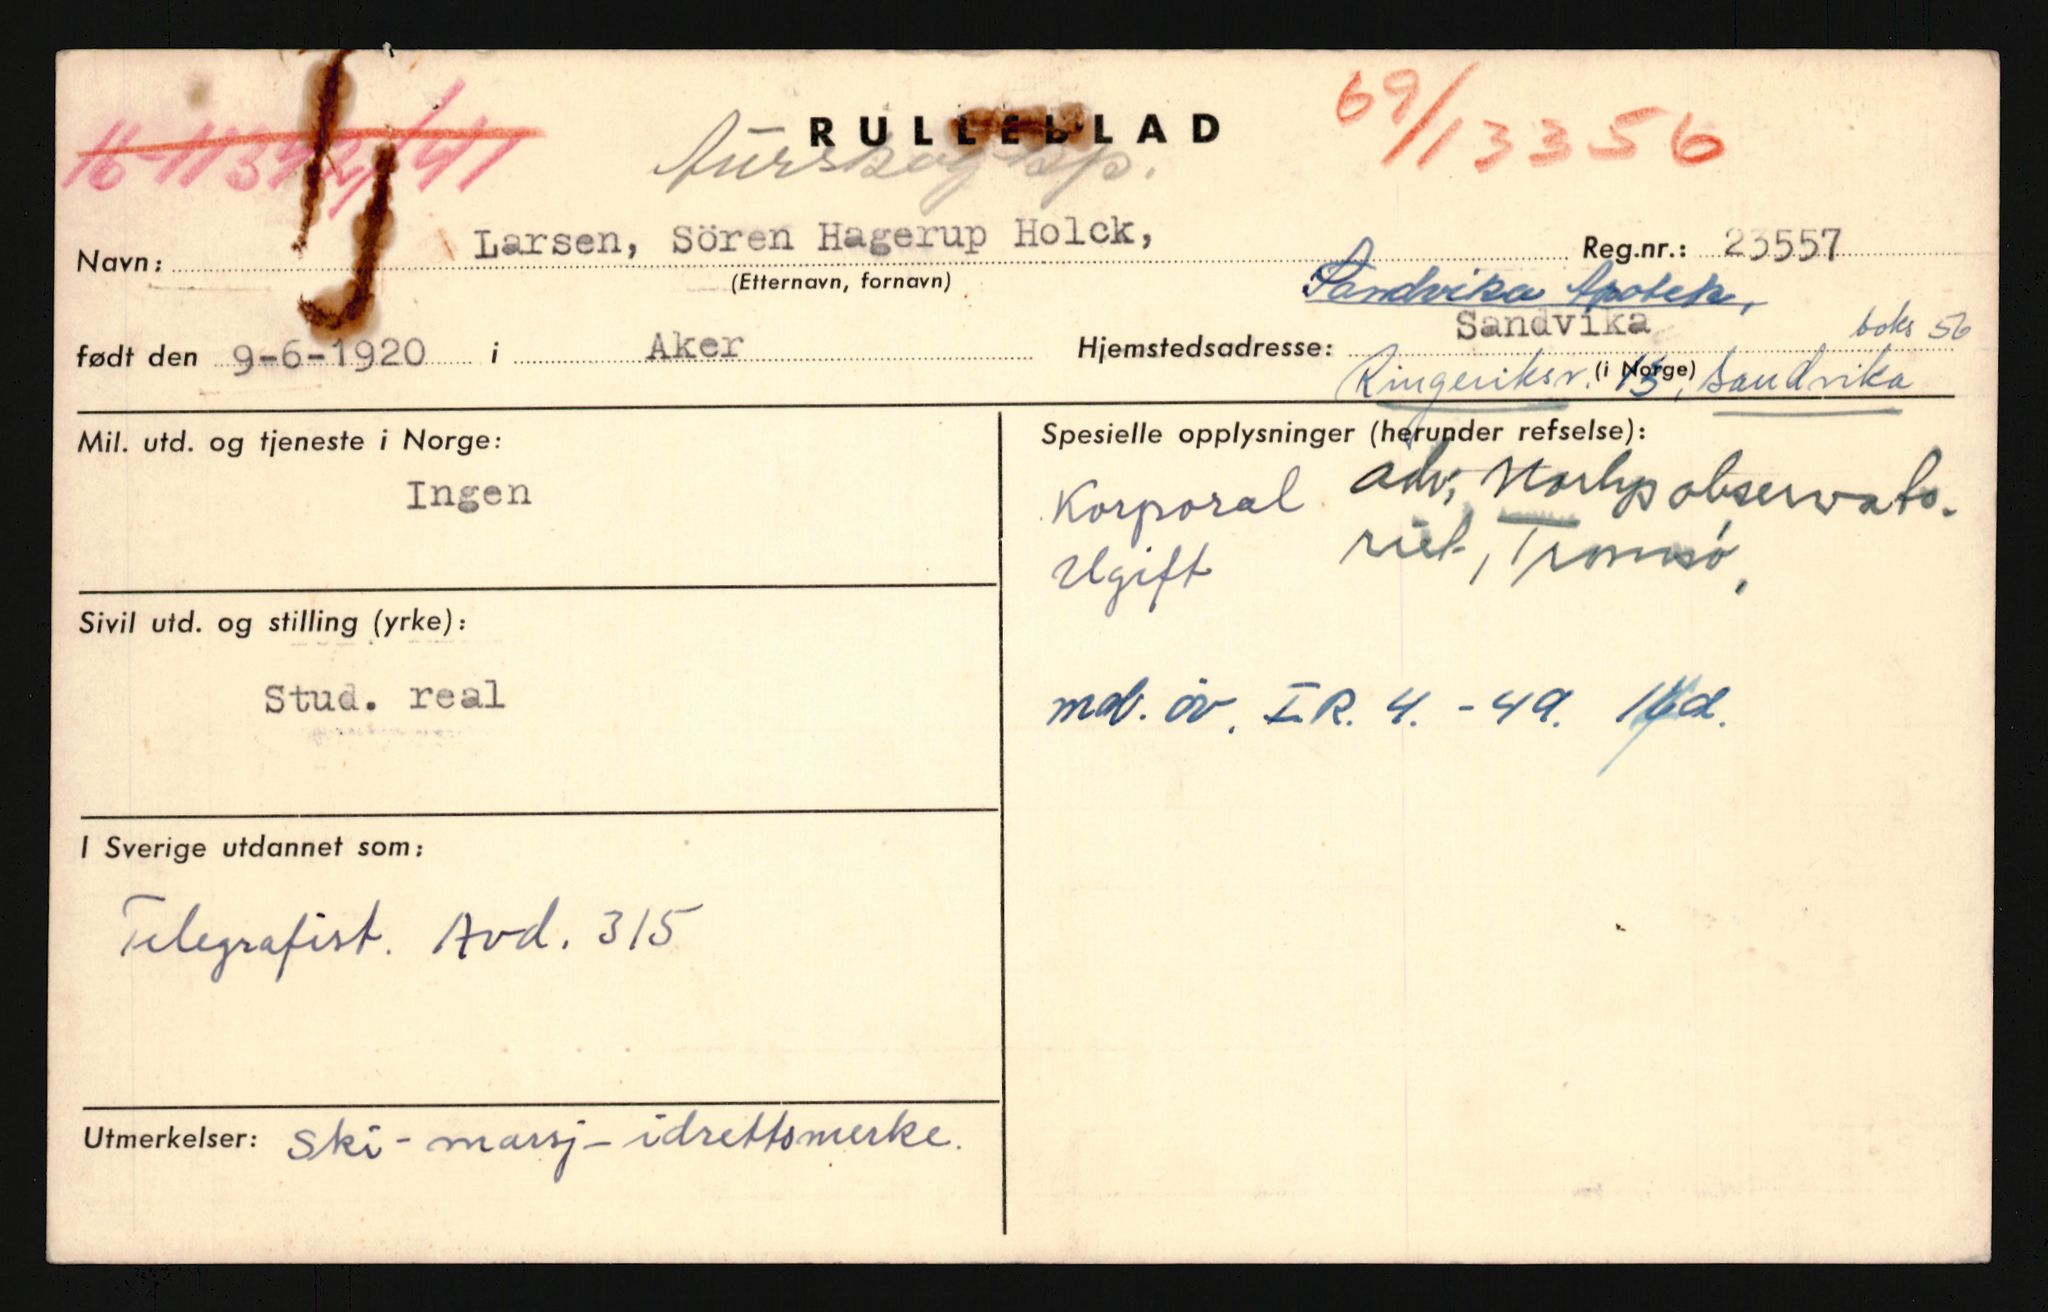 16-11342/41
RULLEBLAD
69/13356
Aurskog kp.
Navn: Larsen, Sören Hagerup Holck,
Reg.nr.: 23557
(Etternavn, fornavn)
Sandvika Apotek,
født den 9-6-1920 i Aker
Hjemstedsadresse: Sandvika
boks 56
(i Norge)
Ringeriksv. 13, Sandvika
Mil. utd. og tjeneste i Norge:
Ingen
Sivil utd. og stilling (yrke):
Stud. real
I Sverige utdannet som:
Telegrafist. Avd. 315
Utmerkelser: Ski - marsj - idrettsmerke.
Spesielle opplysninger (herunder refselse):
Korporal
Ugift
adr, Norlysobservato-
riet, Tromsø,
mob. öv. I.R. 4. - 49. d.